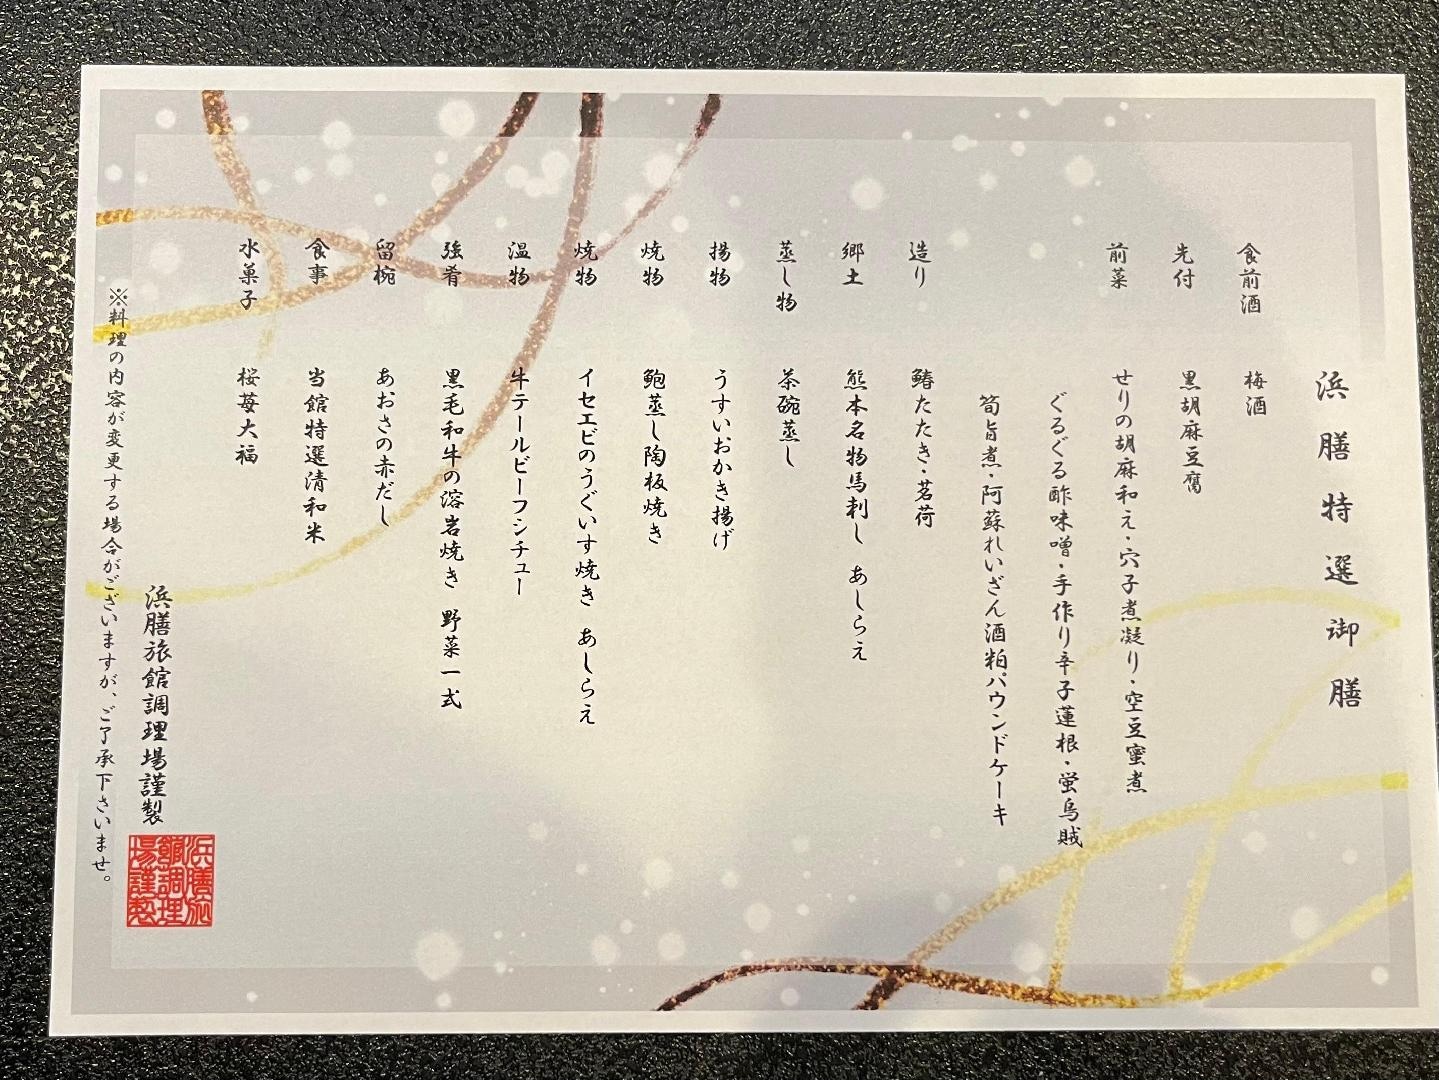 浜膳特選御膳
食前酒 梅酒
先付 黒胡麻豆腐
前菜 せりの胡麻和え・穴子煮凝り・空豆蜜煮
ぐるぐる酢味噌・手作り辛子蓮根・蛍烏賊
筍旨煮・阿蘇れいざん酒粕パウンドケーキ
造り 鰆たたき・茗荷
郷土 熊本名物馬刺し あしらえ
蒸し物 茶碗蒸し
揚物 うすいおかき揚げ
焼物 鮑蒸し陶板焼き
焼物 イセエビのうぐいす焼き あしらえ
温物 牛テールビーフシチュー
強肴 黒毛和牛の溶岩焼き 野菜一式
留椀 あおさの赤だし
食事 当館特選清和米
水菓子 桜苺大福
浜膳旅館調理場謹製
浜膳旅館調理場謹製
※料理の内容が変更する場合がございますが、ご了承下さいませ。